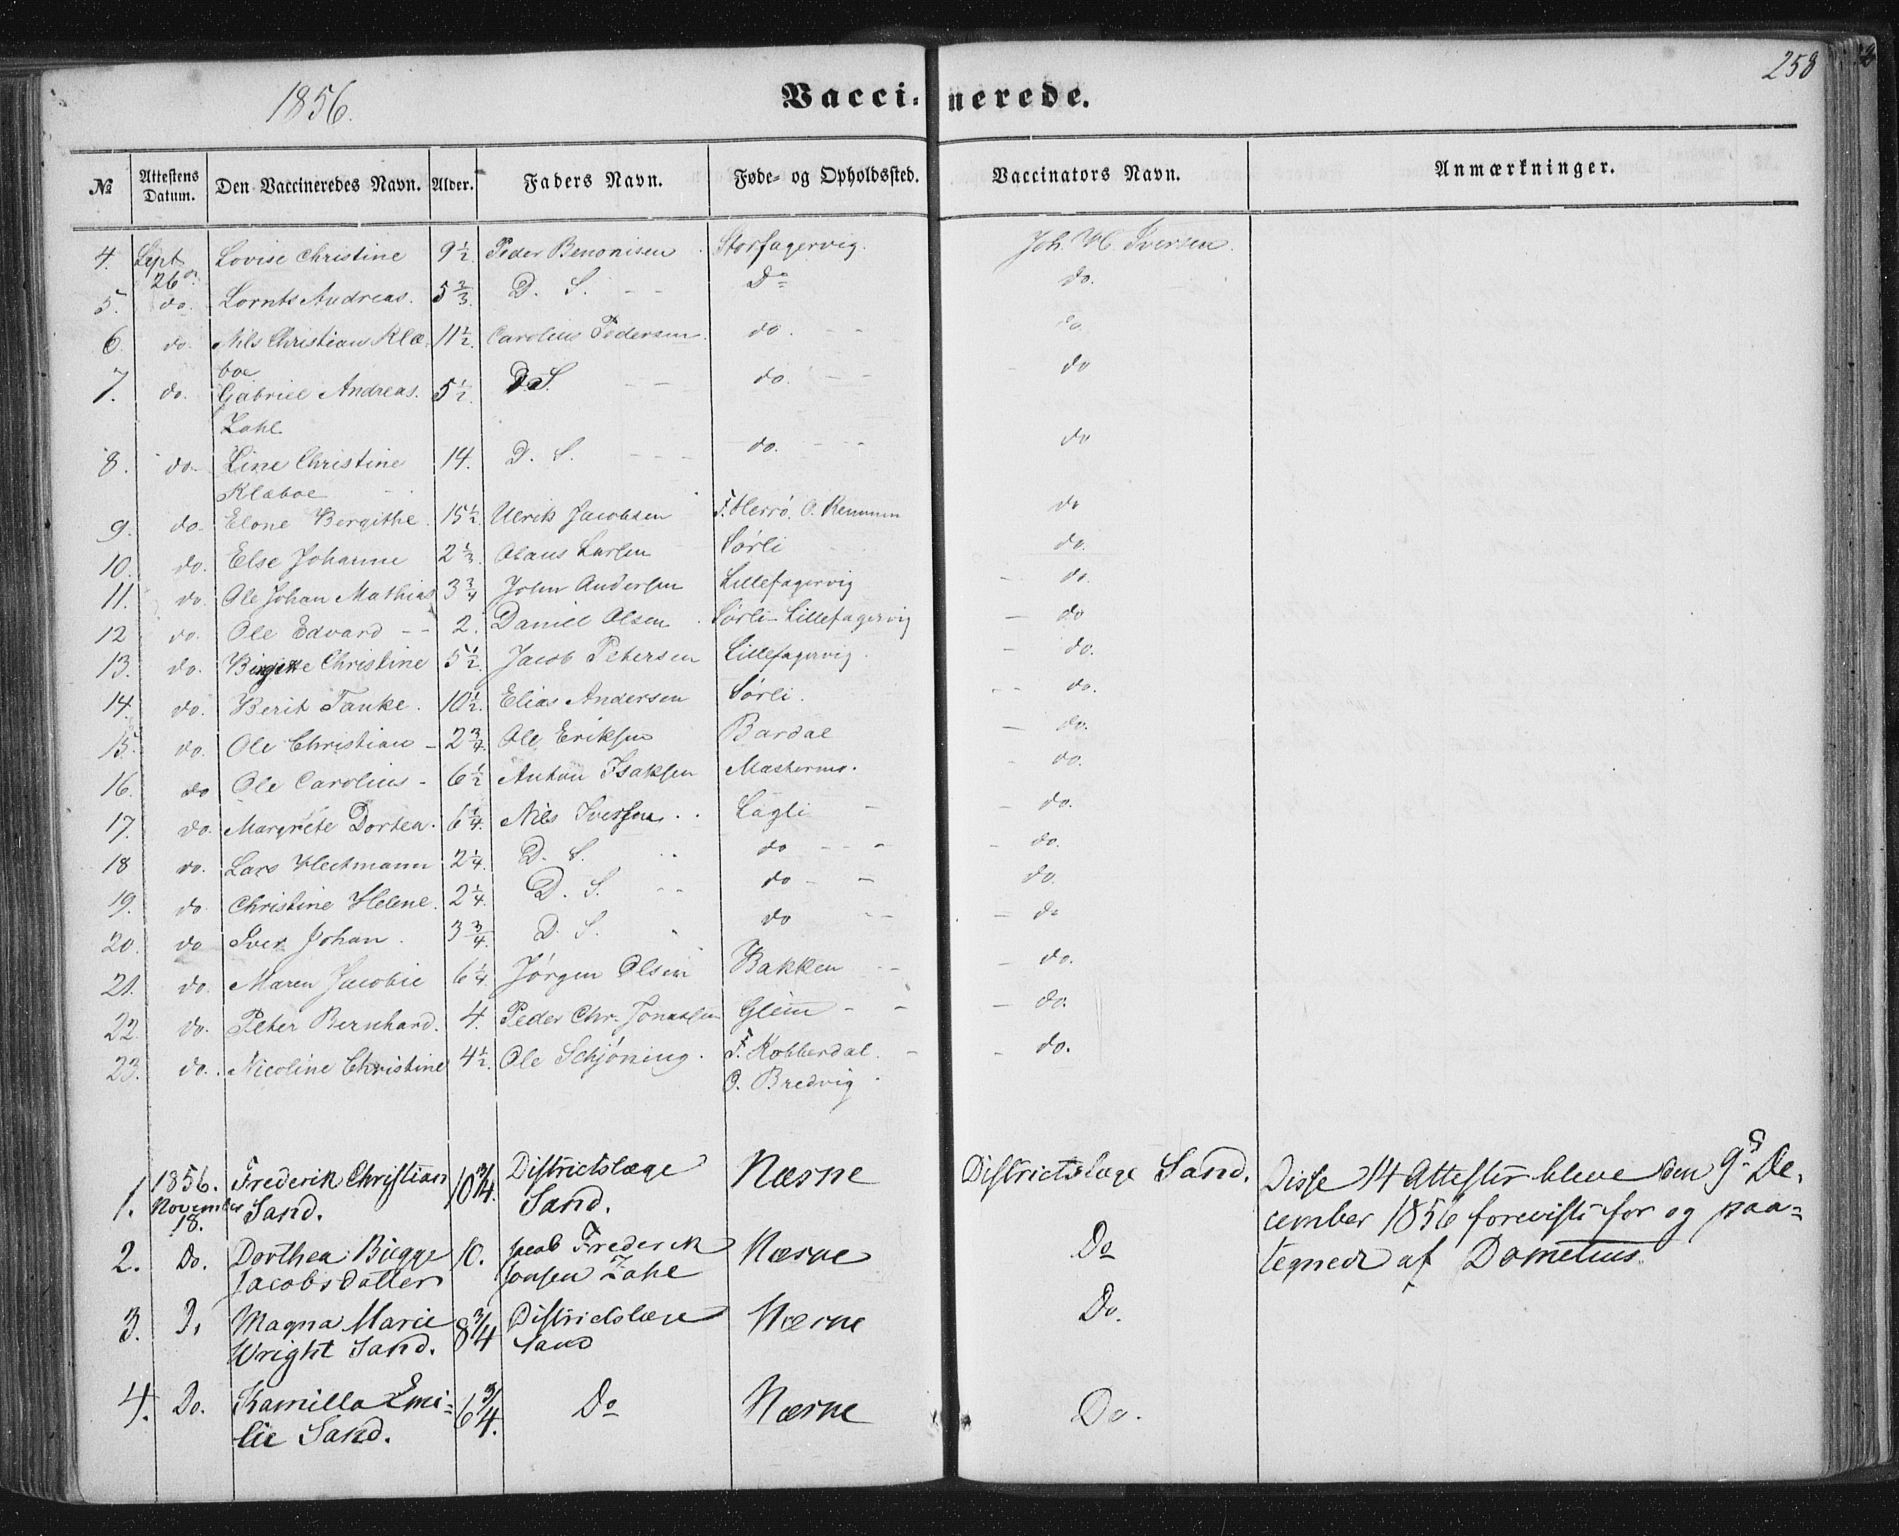 258
1856.
Vaccinerede.
№ Attestens Datum. Den Vaccineredes Navn. Alder. Faders Navn. Føde- og Opholdssted. Vaccinators Navn. Anmærkninger.
4. Sept 26 Lovise Christine 9½ Peder Benonisen Storfagervig. Joh. H. Iversen.
5. do. Lornts Andreas. 5⅔ D. S. Do do.
6. do. Nils Christian Klæ- 11½ Carolius Pedersen do. do
boe
7. do. Gabriel Andreas. 5½ D. S. do. do
Zahl
8. do. Line Christine 14. D. S. do. do
Klæboe
9. do. Elone Bergithe 15½ Ulrik Jacobsen F. Herrø. O. do
10. do. Else Johanne 2⅓ Olaus Larsen Sørli do.
11. do. Ole Johan Mathias 3¾ John Andersen Lillefagervig do.
12 do. Ole Edvard 2. Daniel Olsen Sørli-Lillefagervig do
13. do. Birgitte Christine 5½ Jacob Petersen Lillefagervig. do.
14. do. Berit Tanke. 10½ Elias Andersen Sørli. do.
15. do. Ole Christian 2¾ Ole Eriksen Bardal do.
16. do Ole Carolius 6½ Anton Isaksen Mastermo. do.
17. do. Margrete Dortea. 6¼ Nils Iversen Lagli do.
18 do. Lars Hectmann 2¼ D. S. do do.
19. do Christine Helene. 2¼ D. S. do do.
20. do Iver Johan. 3¾ D. S. do do
21. do. Maren Jacobie 6¼ Jørgen Olsen Bakken do.
22 do. Peter Bernhard. 4. Peder Chr. Jonassen Glein do.
23. do. Nicoline Christine 4½ Ole Schjöning. F. Kobberdal. do.
O. Bredvig
1. 1856. November 18. Frederik Christian 10¾ Districtslæge Næsne Districtslæge Sand. Disse 14 Attester bleve den 9de De-
Sand. Sand. cember 1856 foreviste for og paa-
2. Do. Dorthea Bugge 10. Jacob Frederik Næsne Do tegnede af Dometius.
Jacobsdatter Jonsen Zahl
3. D. Magna Marie 8¾ Districtslæge Næsne Do.
Wright Sand. Sand
4. Do. Kamilla Emi- 6¾ Do Næsne Do.
lie Sand.